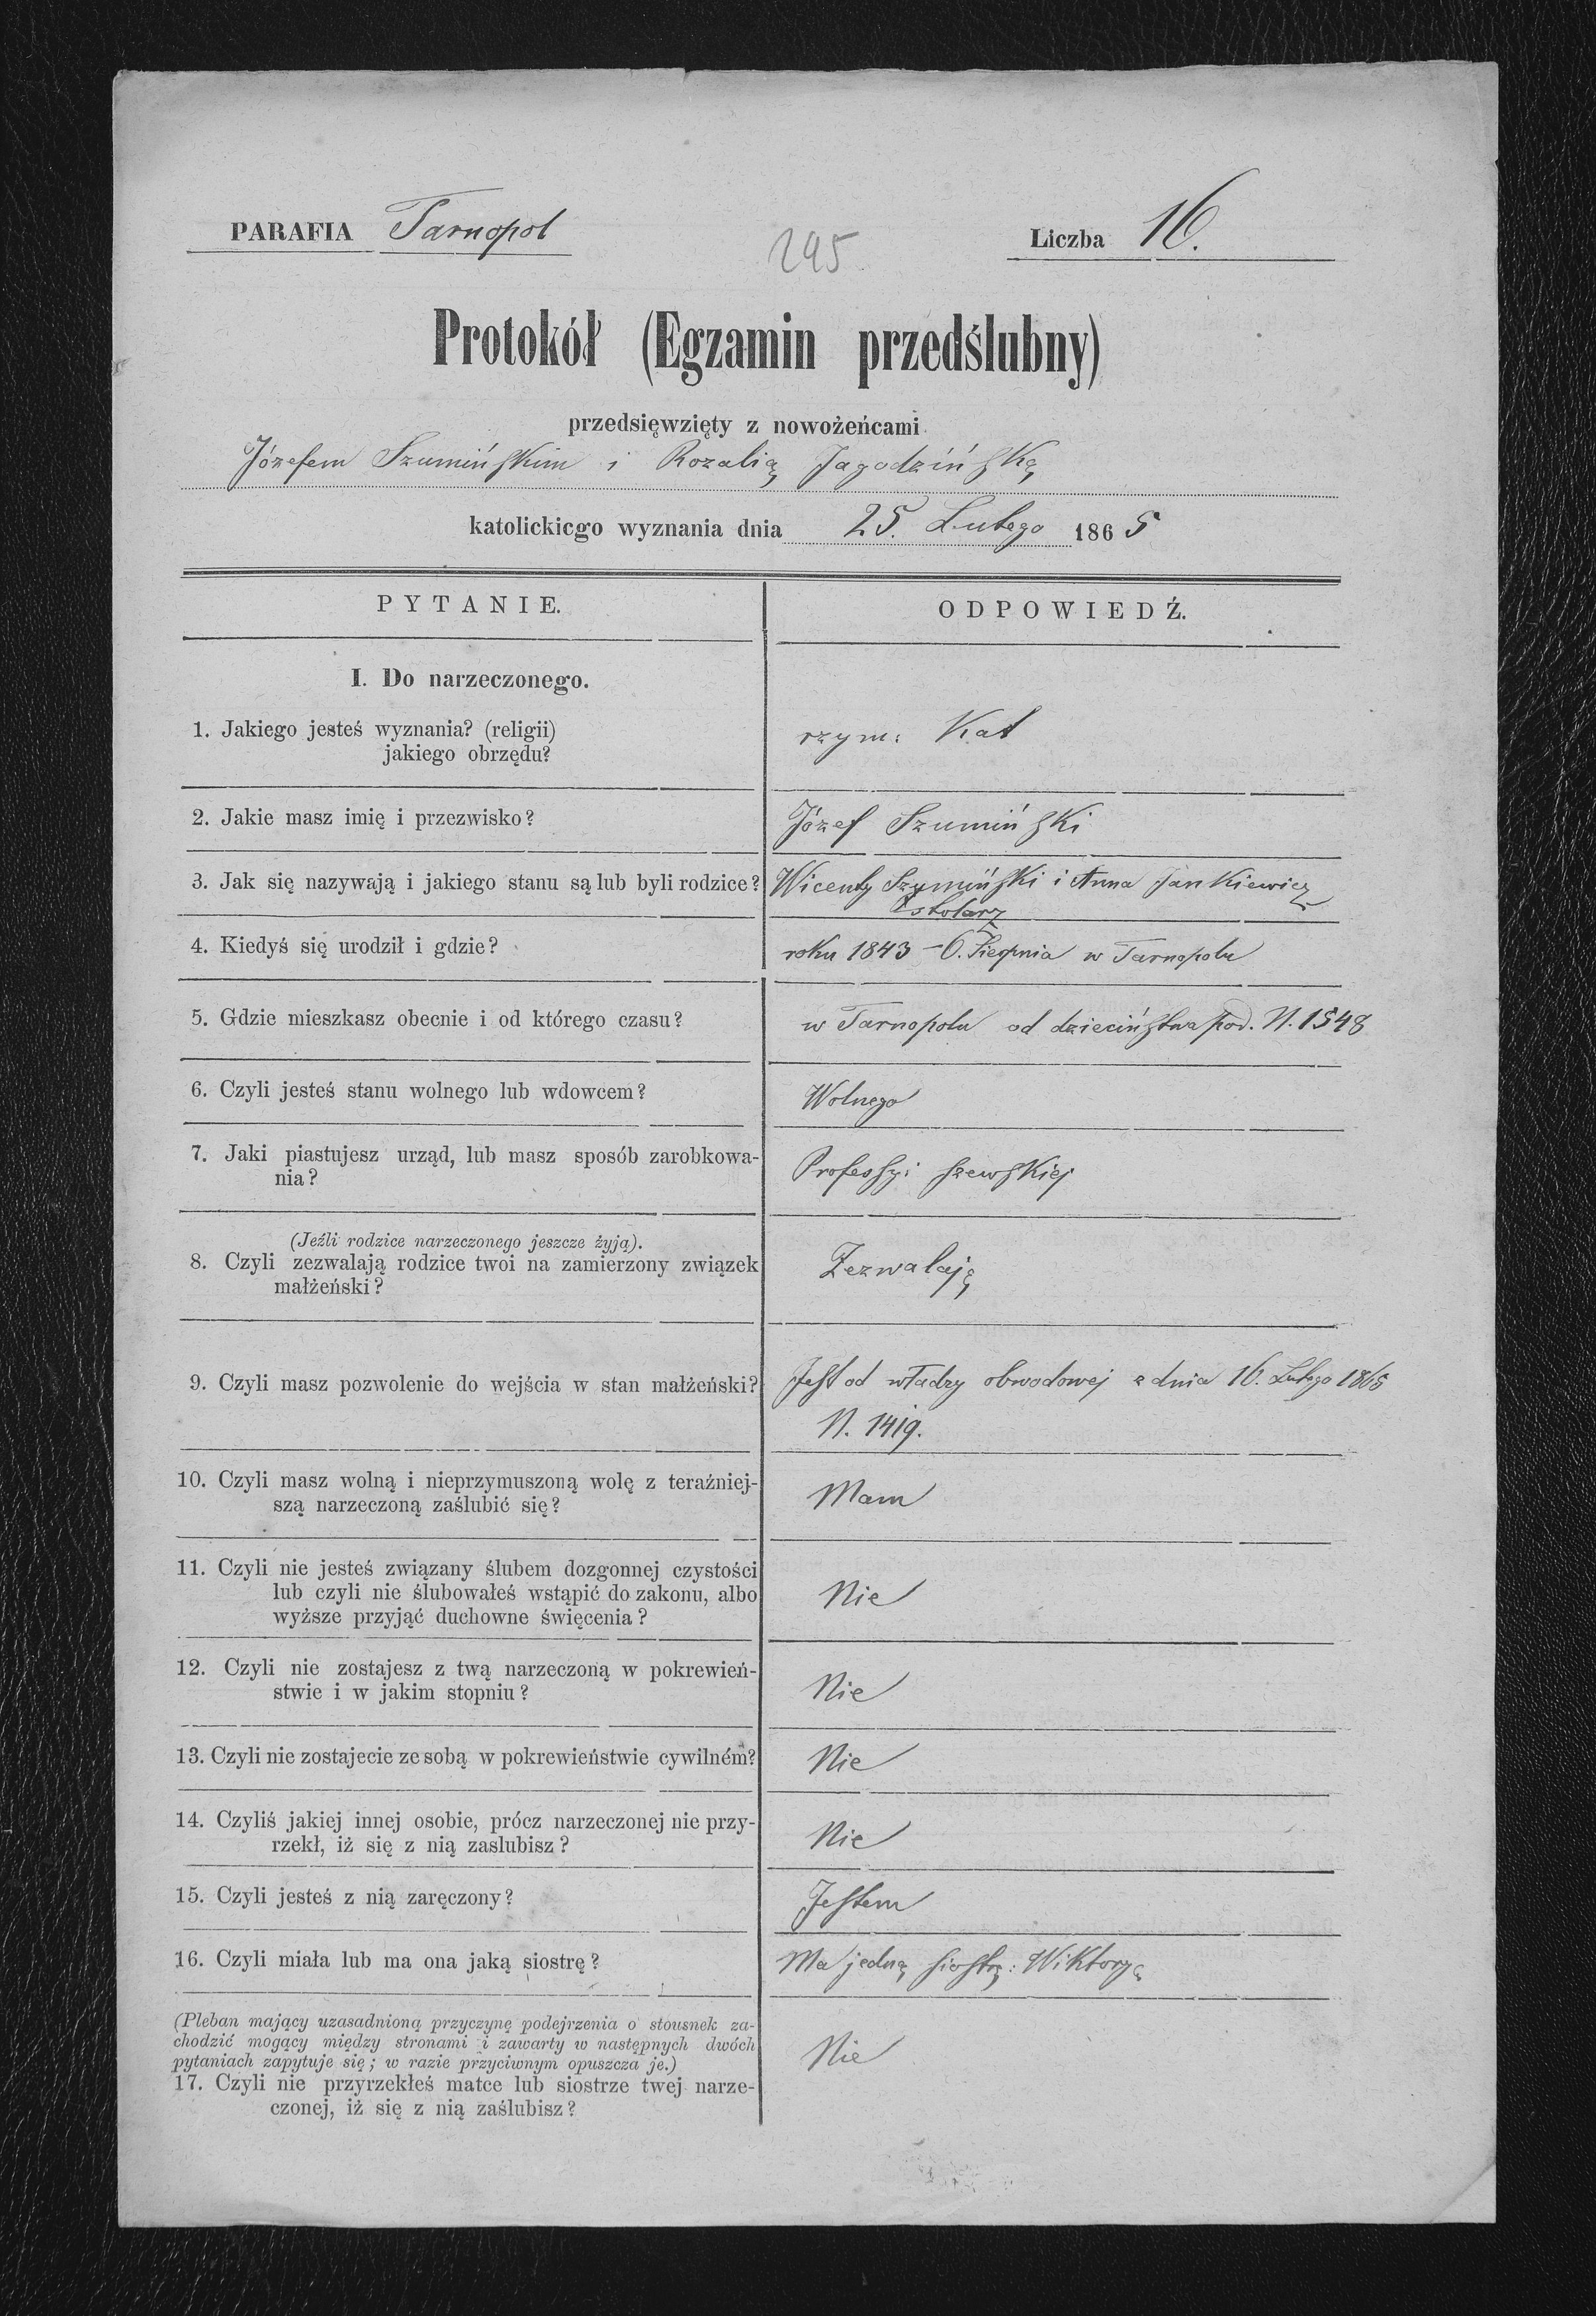 PARAFIA Tarnopol
295
Liczba 16.
Protokół (Egzamin przedślubny)
przedsięwzięty z nowożeńcami
Józefem Szumińskim i Rozalią Jagodzińską
katolickiego wyznania dnia 25. Lutego 1865
PYTANIE.
ODPOWIEDŹ.
I. Do narzeczonego.
1. Jakiego jesteś wyznania? (religii)
jakiego obrzędu?
rzym: Kat
2. Jakie masz imię i przezwisko?
Józef Szumiński
3. Jak się nazywają i jakiego stanu są lub byli rodzice?
Wicenty Szymiński i Anna Jankiewicz
stolarz
4. Kiedyś się urodził i gdzie?
roku 1843 – 6. Sierpnia w Tarnopolu
5. Gdzie mieszkasz obecnie i od którego czasu?
w Tarnopolu od dzieciństwa pod. N. 1548
6. Czyli jesteś stanu wolnego lub wdowcem?
Wolnego
7. Jaki piastujesz urząd, lub masz sposób zarobkowa-
nia?
Professyi szewskiej
(Jeźli rodzice narzeczonego jeszcze żyją).
8. Czyli zezwalają rodzice twoi na zamierzony związek
małżeński?
Zezwalają
9. Czyli masz pozwolenie do wejścia w stan małżeński?
Jest od władzy obwodowej z dnia 16. Lutego 1865
N. 1419.
10. Czyli masz wolną i nieprzymuszoną wolę z teraźniej-
szą narzeczoną zaślubić się?
Mam
11. Czyli nie jesteś związany ślubem dozgonnej czystości
lub czyli nie ślubowałeś wstąpić do zakonu, albo
wyższe przyjąć duchowne święcenia?
Nie
12. Czyli nie zostajesz z twą narzeczoną w pokrewień-
stwie i w jakim stopniu?
Nie
13. Czyli nie zostajecie ze sobą w pokrewieństwie cywilném?
Nie
14. Czyliś jakiej innej osobie, prócz narzeczonej nie przy-
rzekł, iż się z nią zaslubisz?
Nie
15. Czyli jesteś z nią zaręczony?
Jestem
16. Czyli miała lub ma ona jaką siostrę?
Ma jedną siostrę: Wiktoryą
(Pleban mający uzasadnioną przyczynę podejrzenia o stousnek za-
chodzić mogący między stronami i zawarty w następnych dwóch
pytaniach zapytuje się; w razie przyciwnym opuszcza je.)
17. Czyli nie przyrzekłeś matce lub siostrze twej narze-
czonej, iż się z nią zaślubisz?
Nie